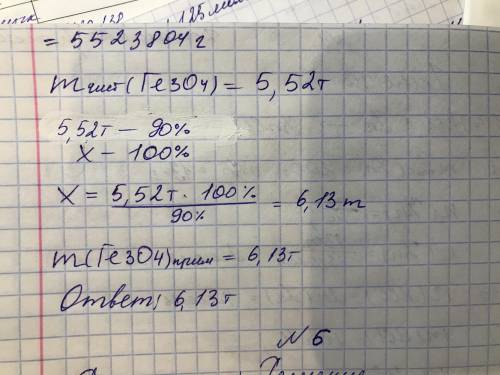 = 5523804 г
m чист (Fe3O4) = 5,52т
5,52т — 90%
x — 100%
x = 5,52т · 100% / 90% = 6,13т
m(Fe3O4)прим = 6,13т
Ответ: 6,13т
№ 6